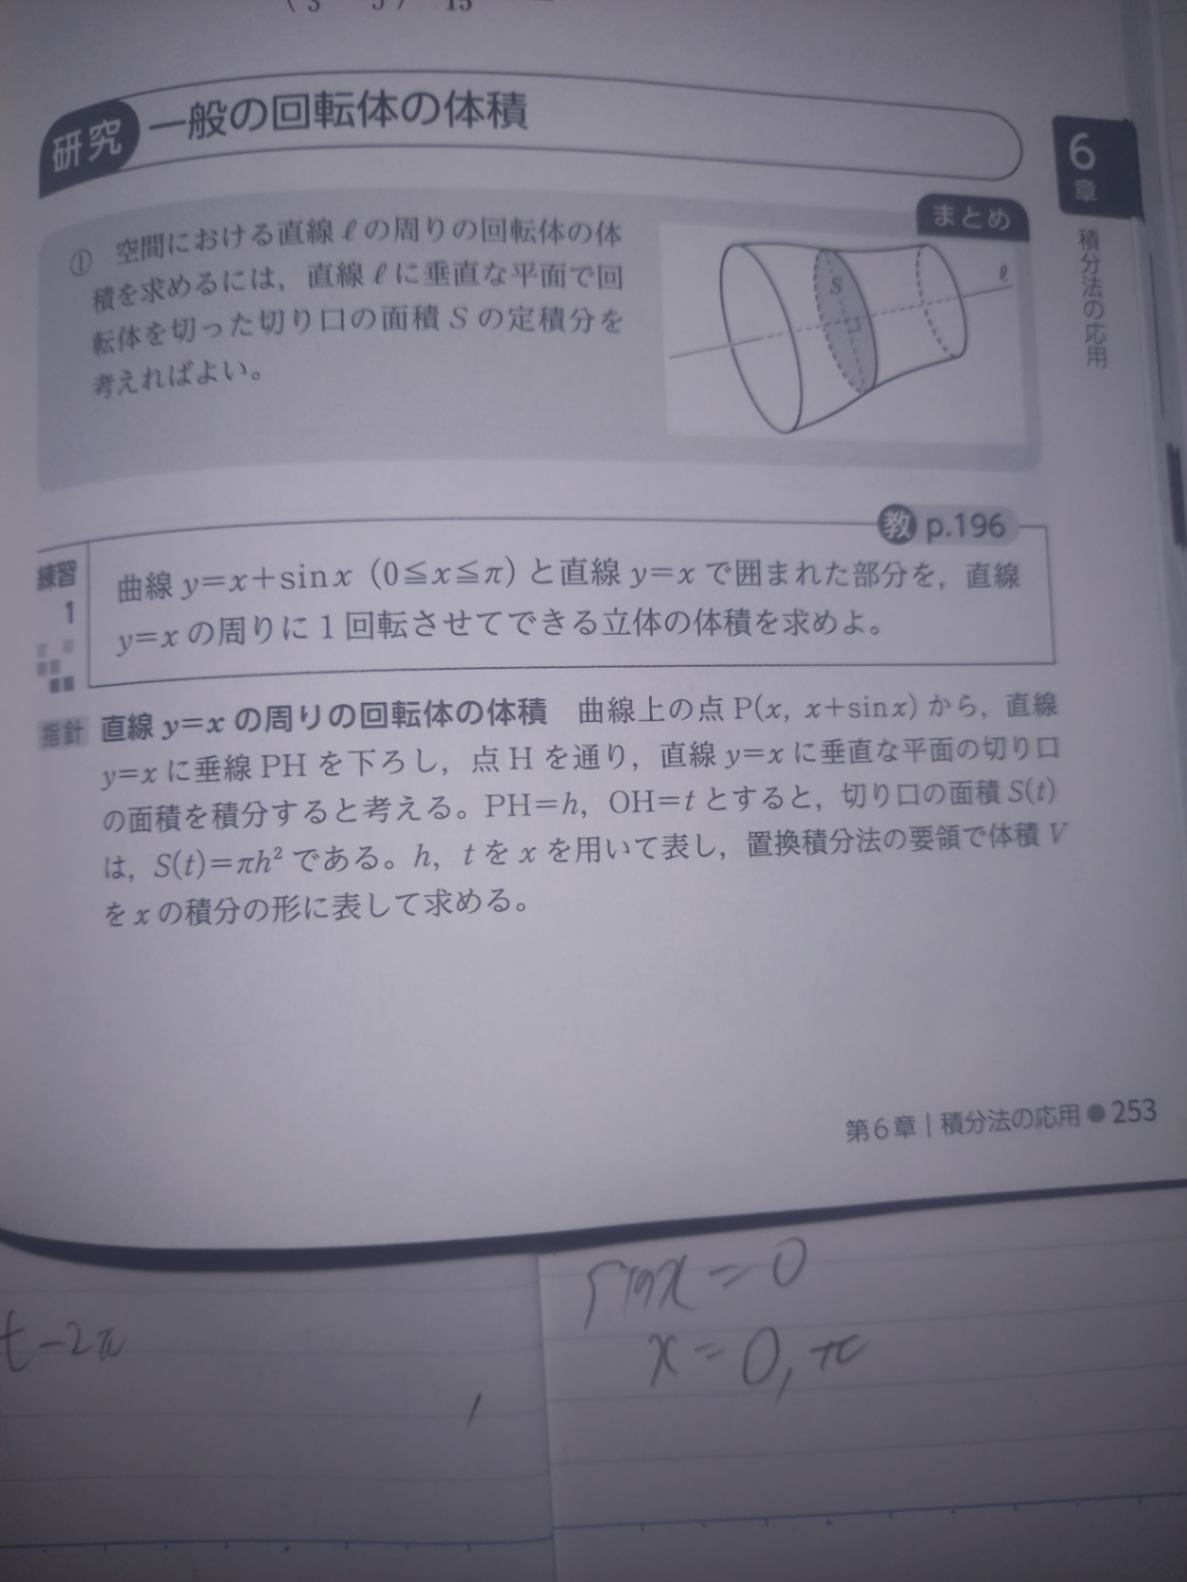 研究 一般の回転体の体積
6
章
積分法の応用
まとめ
① 空間における直線ℓの周りの回転体の体
積を求めるには，直線ℓに垂直な平面で回
転体を切った切り口の面積Sの定積分を
考えればよい。
S
ℓ
教 p.196
練習
1
曲線 y=x+sinx (0≦x≦π) と直線 y=x で囲まれた部分を，直線
y=x の周りに1回転させてできる立体の体積を求めよ。
指針 直線 y=x の周りの回転体の体積 曲線上の点 P(x, x+sinx) から，直線
y=x に垂線 PH を下ろし，点 H を通り，直線 y=x に垂直な平面の切り口
の面積を積分すると考える。PH=h，OH=t とすると，切り口の面積 S(t)
は，S(t)=πh² である。h，t を x を用いて表し，置換積分法の要領で体積 V
を x の積分の形に表して求める。
第6章｜積分法の応用 ● 253
sinx=0
t-2π
x=0, π